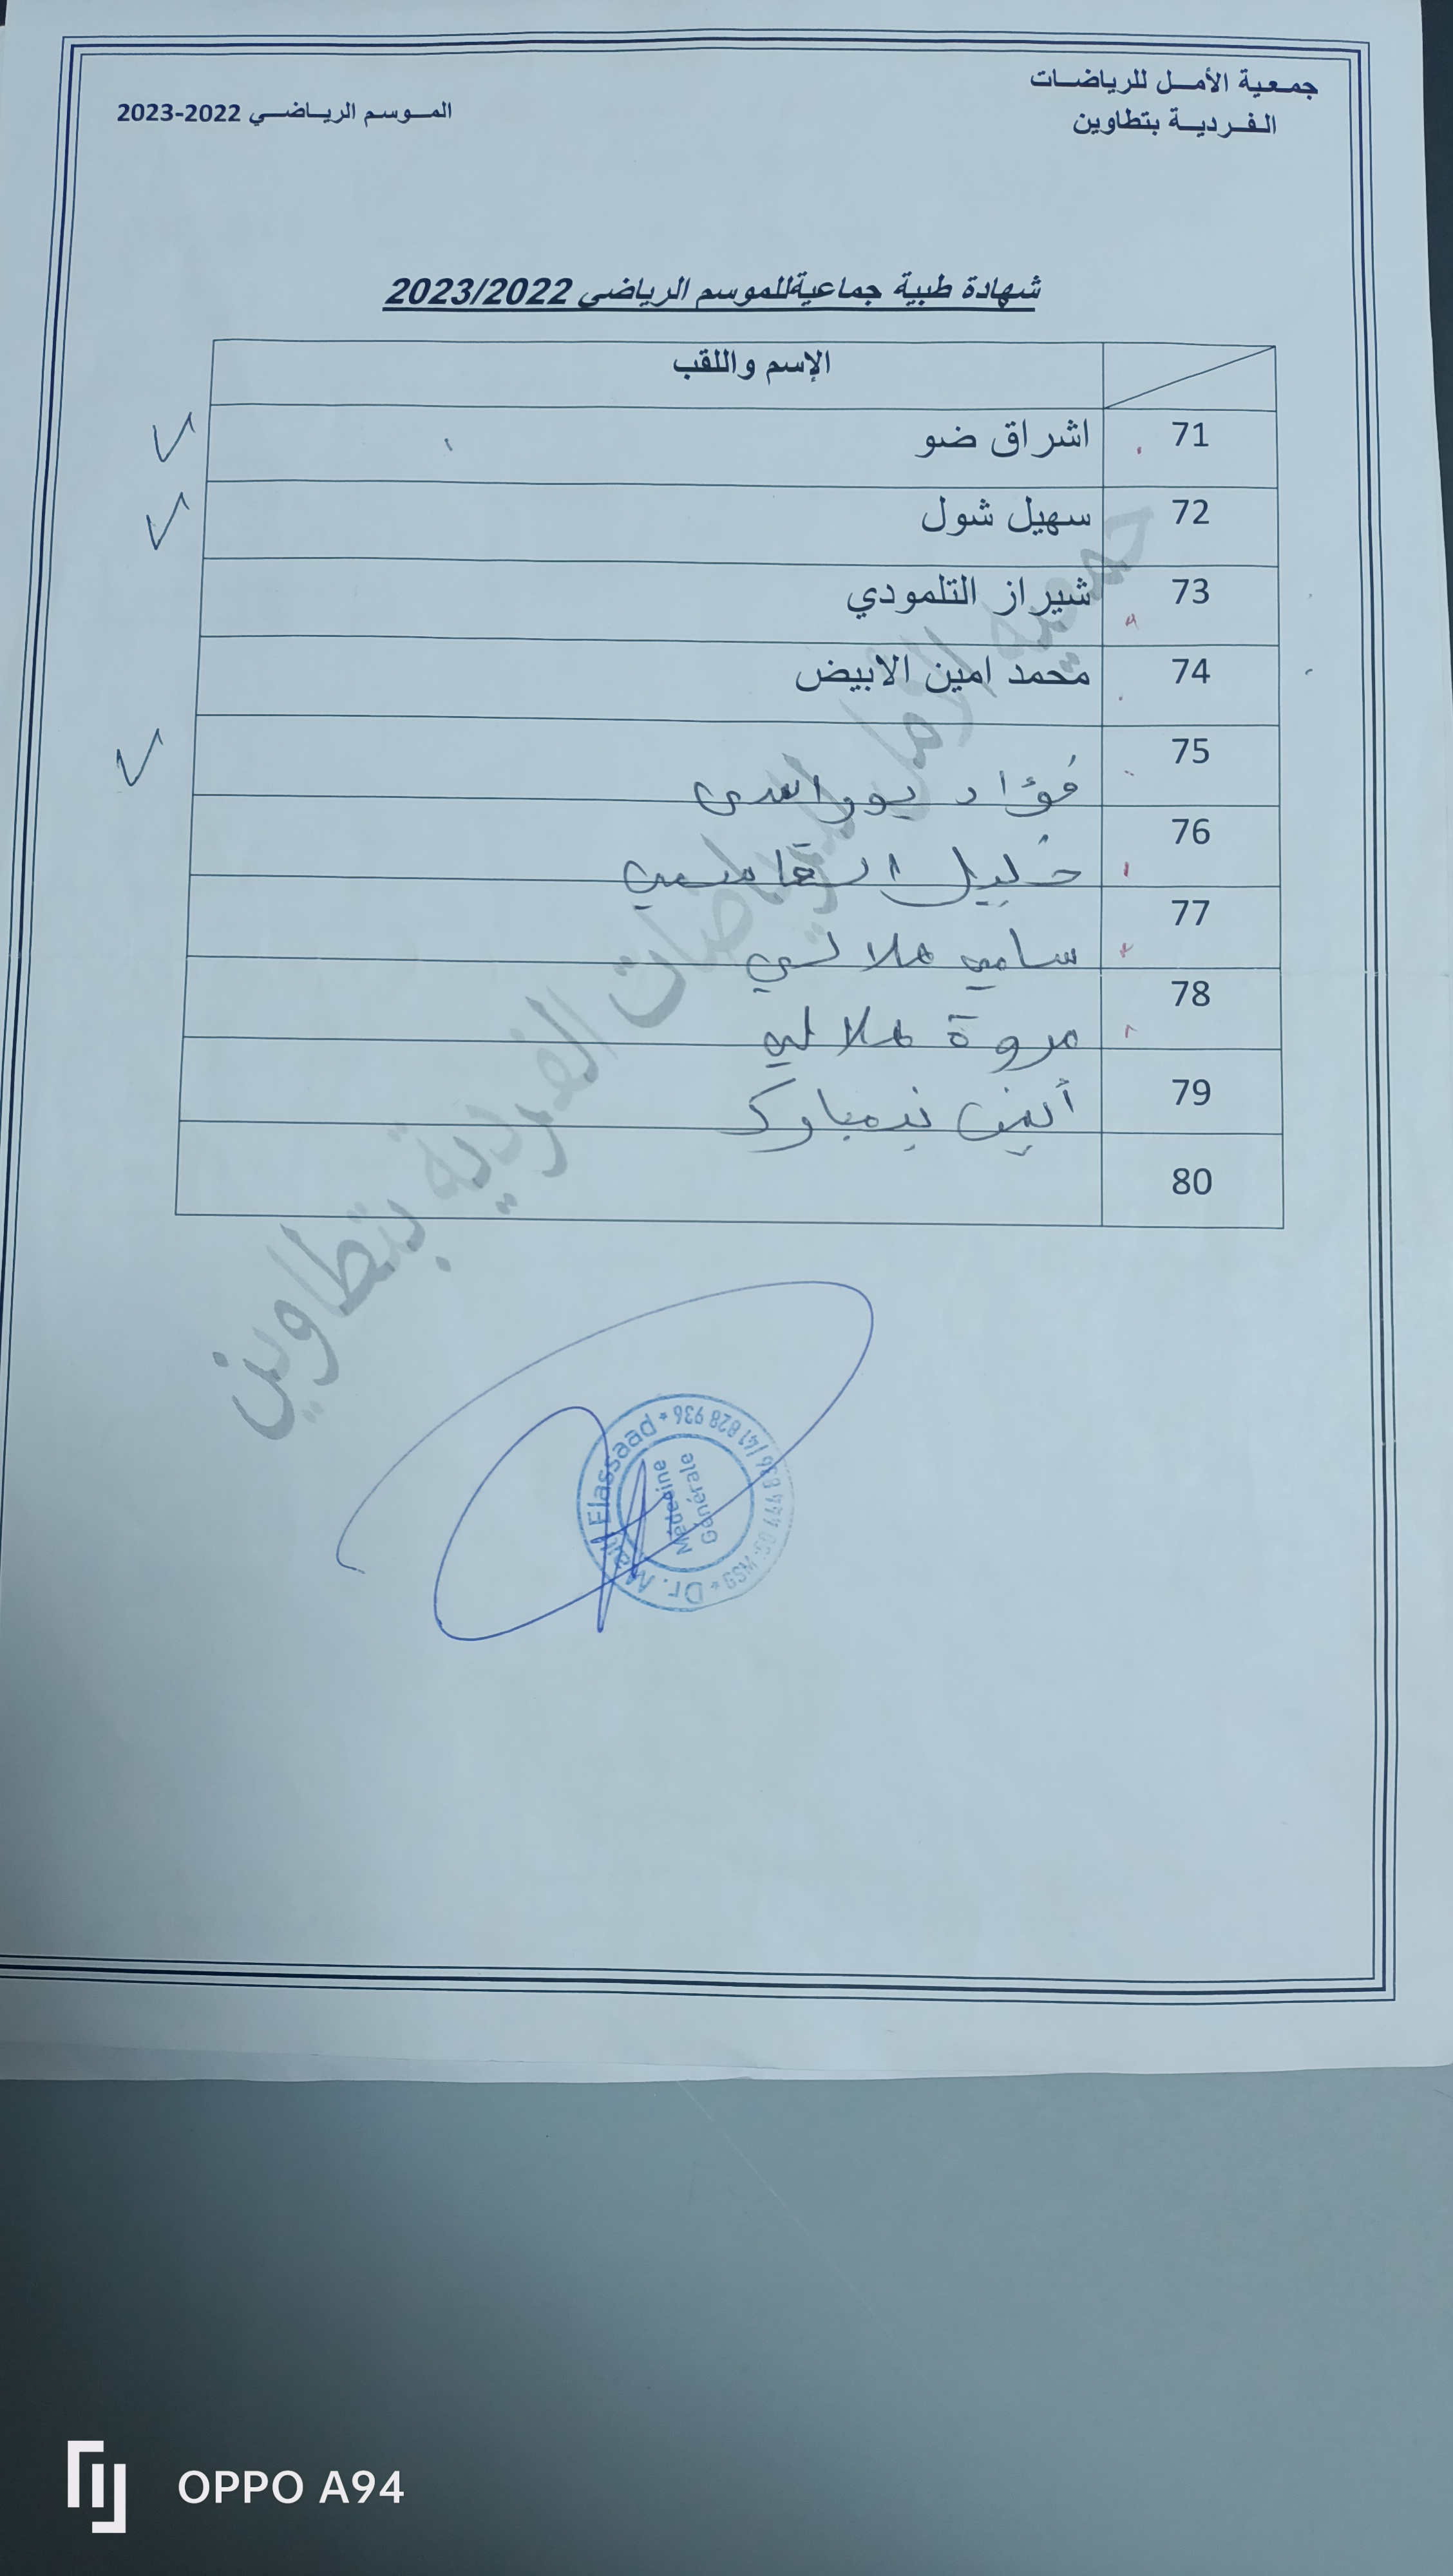 جمعية الأمل للرياضات
الفردية بتطاوين
الموسم الرياضي 2022-2023
شهادة طبية جماعيةللموسم الرياضي 2023/2022
الإسم واللقب
71 اشراق ضو
72 سهيل شول
73 شيراز التلمودي
74 محمد امين الابيض
75 فؤاد
76 خليل القاسمي
77 سامي هلالي
78 مروة هلالي
79 أيمن بنمبارك
80
جمعية الأمل للرياضات الفردية بتطاوين
Dr. Melki Elassaad
Médecine
Générale
OPPO A94